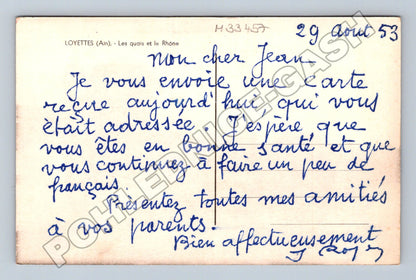 M33457
29 aout 53
LOYETTES (Ain). - Les quais et le Rhône
Mon cher Jean
Je vous envoie une carte
reçue aujourd'hui qui vous
était adressée J'espère que
vous êtes en bonne santé et que
vous continuez à faire un peu de
français.
Présentez toutes mes amitiés
à vos parents.
Bien affectueusement
POHLERNICE-GASH